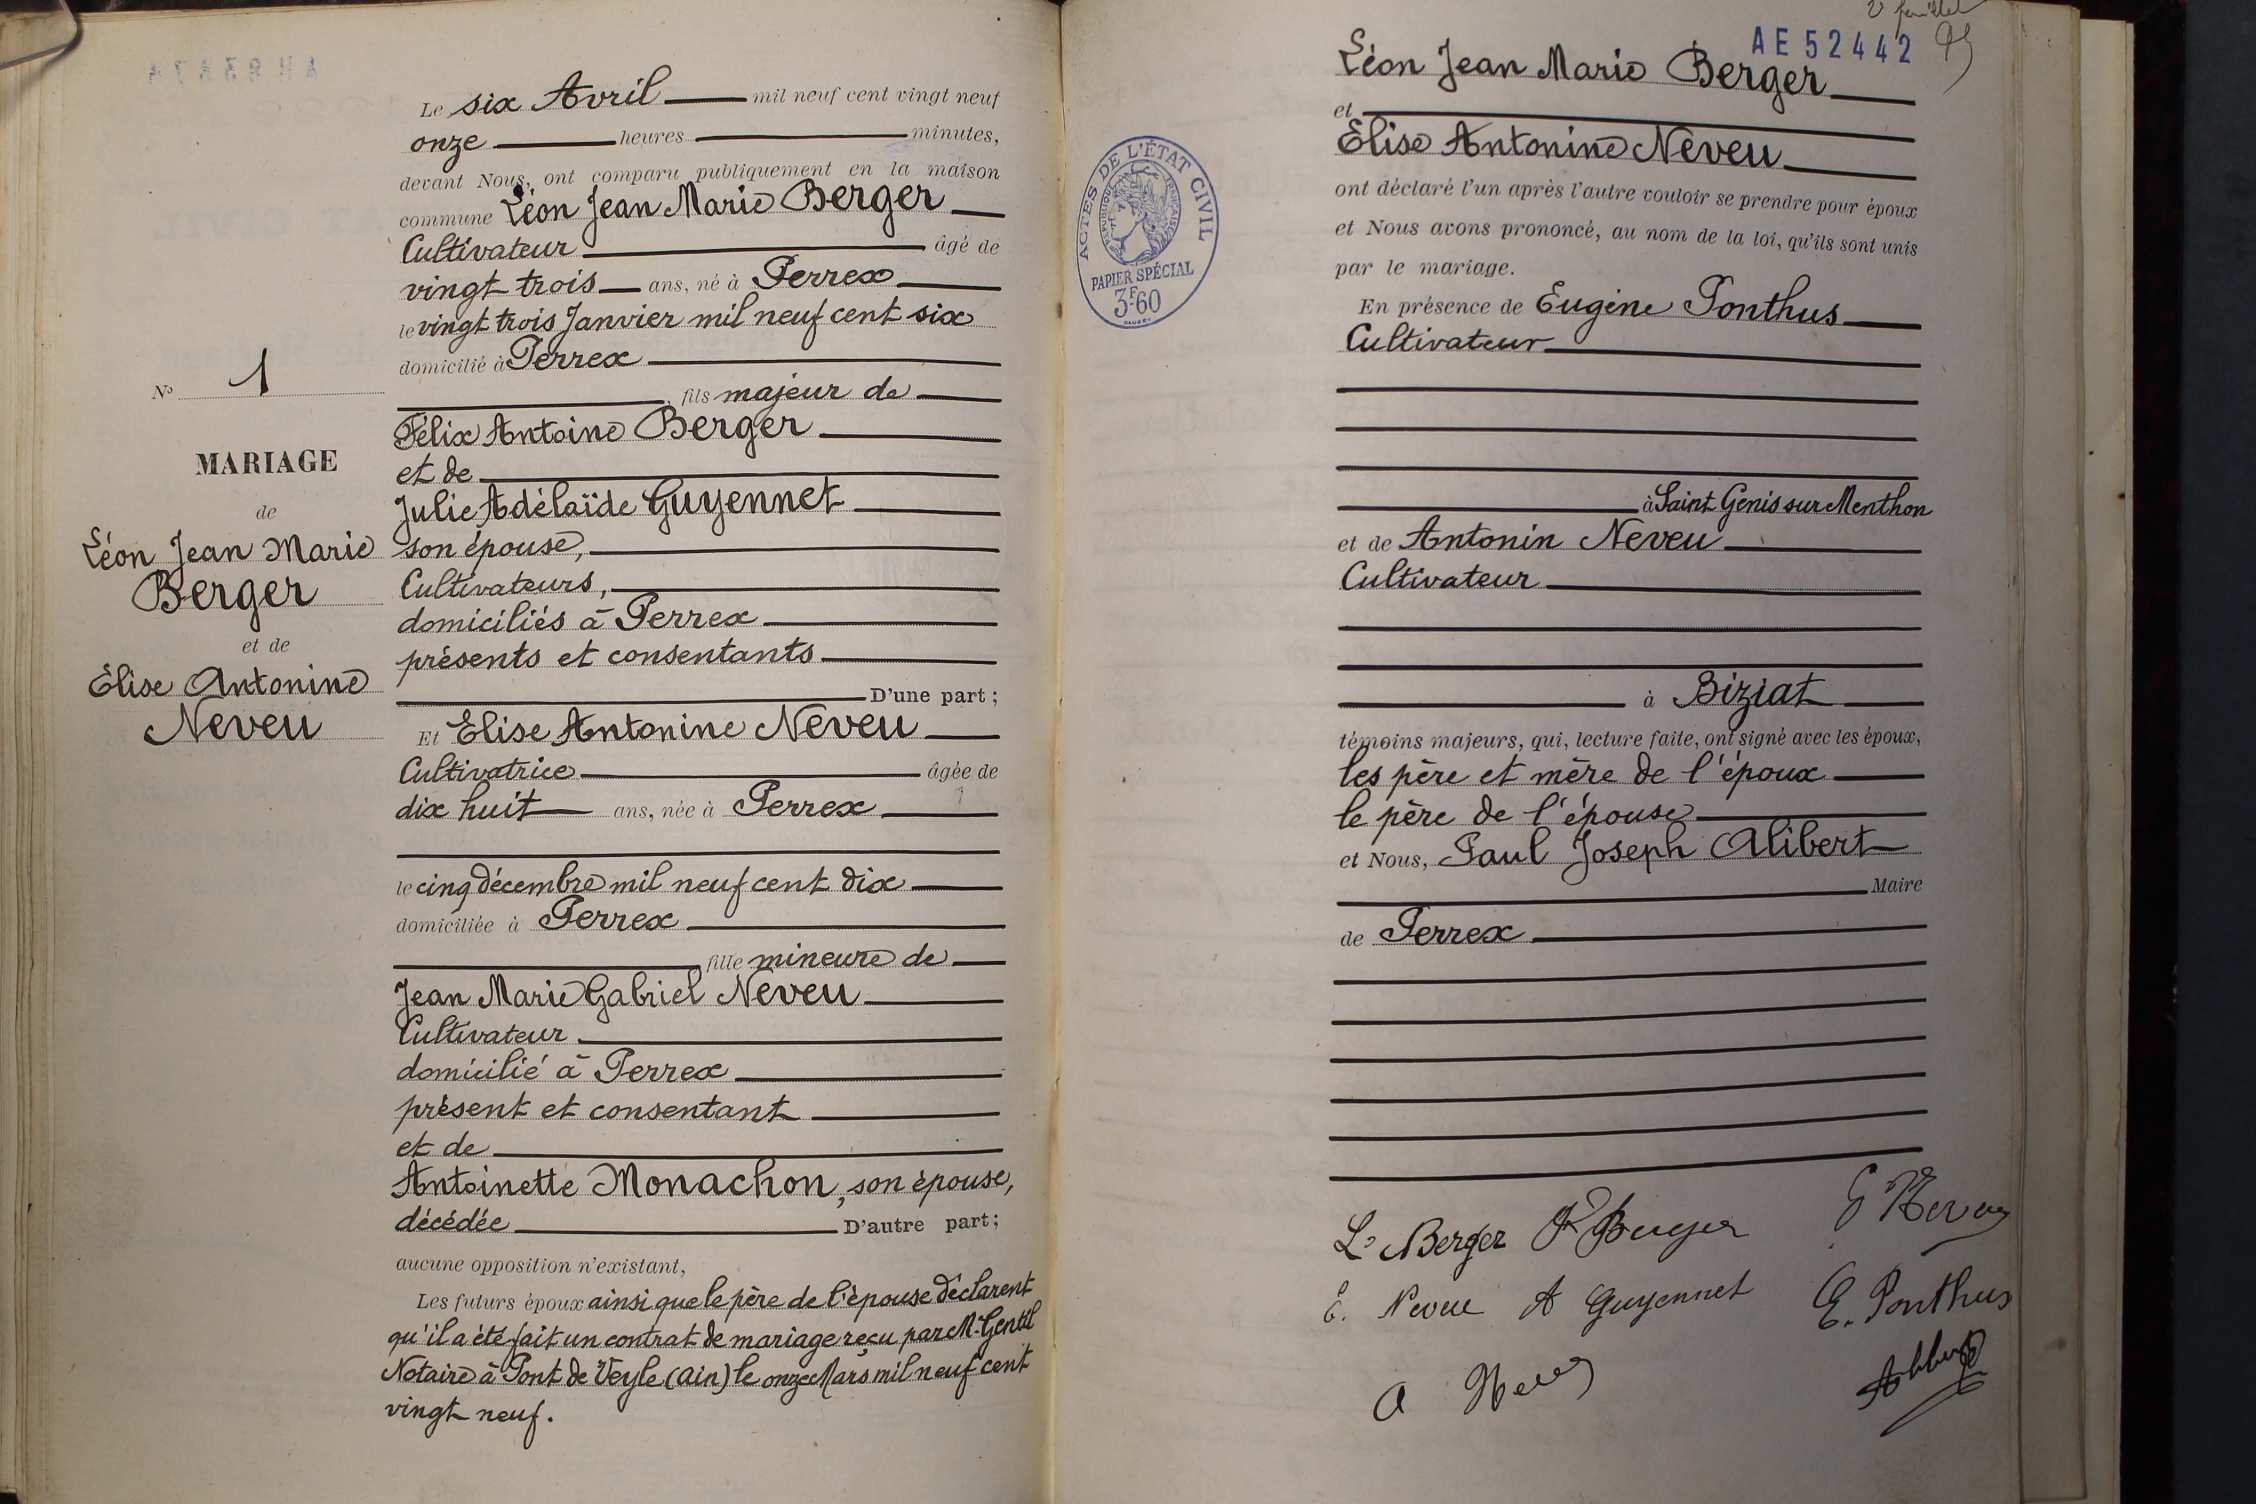 Le six Avril mil neuf cent vingt neuf
onze heures minutes,
devant Nous, ont comparu publiquement en la maison
commune Léon Jean Marie Berger
Cultivateur âgé de
vingt trois ans, né à Perrex
le vingt trois Janvier mil neuf cent six
domicilié à Perrex
fils majeur de
Félix Antoine Berger
et de
Julie Adélaïde Guyennet
son épouse,
Cultivateurs,
domiciliés à Perrex
présents et consentants
D'une part;
Et Elise Antonine Neveu
Cultivatrice âgée de
dix huit ans, née à Perrex
le cinq décembre mil neuf cent dix
domiciliée à Perrex
fille mineure de
Jean Marie Gabriel Neveu
Cultivateur
domicilié à Perrex
présent et consentant
et de
Antoinette Monachon, son épouse,
décédée D'autre part;
aucune opposition n'existant,
Les futurs époux ainsi que le père de l'épouse déclarent
qu'il a été fait un contrat de mariage reçu par Me Gentil
Notaire à Pont de Veyle (Ain) le onze Mars mil neuf cent
vingt neuf.
No 1
MARIAGE
de
Léon Jean Marie
Berger
et de
Elise Antonine
Neveu
2e feuillet
AE 52442
95
Léon Jean Marie Berger
et
Elise Antonine Neveu
ont déclaré l'un après l'autre vouloir se prendre pour époux
et Nous avons prononcé, au nom de la loi, qu'ils sont unis
par le mariage.
En présence de Eugène Ponthus
Cultivateur
à Saint Genis sur Menthon
et de Antonin Neveu
Cultivateur
à Biziat
témoins majeurs, qui, lecture faite, ont signé avec les époux,
les père et mère de l'époux
le père de l'épouse
et Nous, Paul Joseph Alibert
Maire
de Perrex
ACTES DE L'ÉTAT CIVIL
RÉPUBLIQUE FRANÇAISE
PAPIER SPÉCIAL
3F60
L. Berger F Berger G Neveu
E. Neveu A Guyennet E. Ponthus
A Neveu Alibert